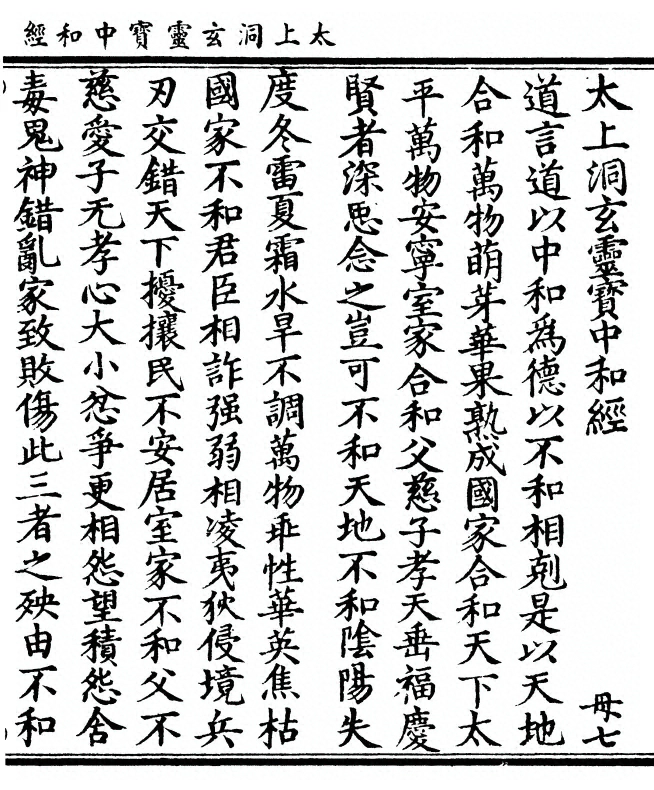 太上洞玄靈寶中和經
太上洞玄靈寶中和經 母七
道言道以中和為德以不和相剋是以天地
合和萬物萌芽華果熟成國家合和天下太
平萬物安寧室家合和父慈子孝天垂福慶
賢者深思念之豈可不和天地不和陰陽失
度冬雷夏霜水旱不調萬物乖性華英焦枯
國家不和君臣相詐强弱相凌夷狄侵境兵
刃交錯天下擾攘民不安居室家不和父不
慈愛子无孝心大小忿爭更相怨望積怨含
毒鬼神錯亂家致敗傷此三者之殃由不和